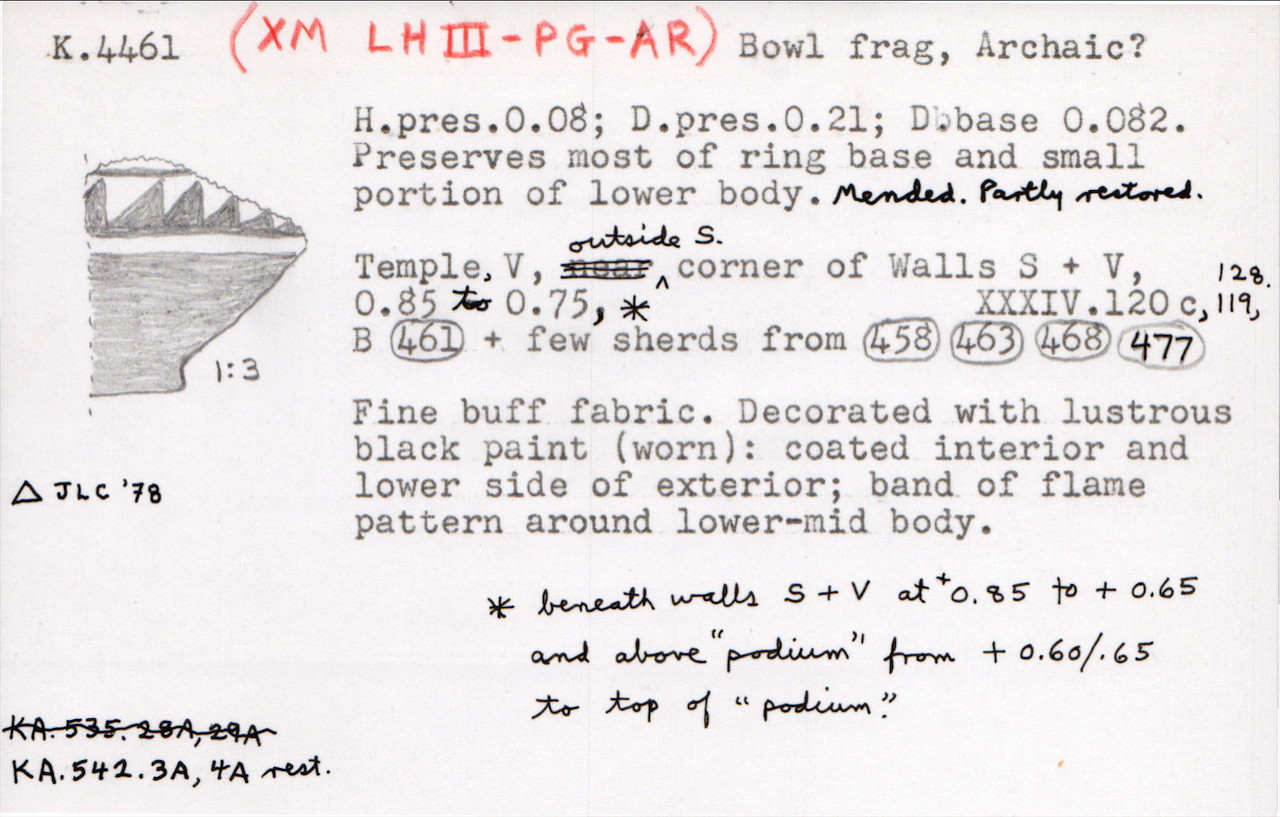 K.4461 (XM LH III-PG-AR) Bowl frag, Archaic?
H.pres.0.08; D.pres.0.21; D.base 0.082.
Preserves most of ring base and small
portion of lower body. Mended. Partly restored.
outside S.
Temple, V, near ^ corner of Walls S + V, 128.
0.85 to 0.75, * XXXIV.120 c, 119,
B 461 + few sherds from 458 463 468 477
1:3
Fine buff fabric. Decorated with lustrous
black paint (worn): coated interior and
lower side of exterior; band of flame
pattern around lower-mid body.
△ JLC '78
* beneath walls S + V at +0.85 to + 0.65
and above "podium" from + 0.60/.65
to top of "podium."
KA.535.28A, 29A
KA.542.3A, 4A rest.